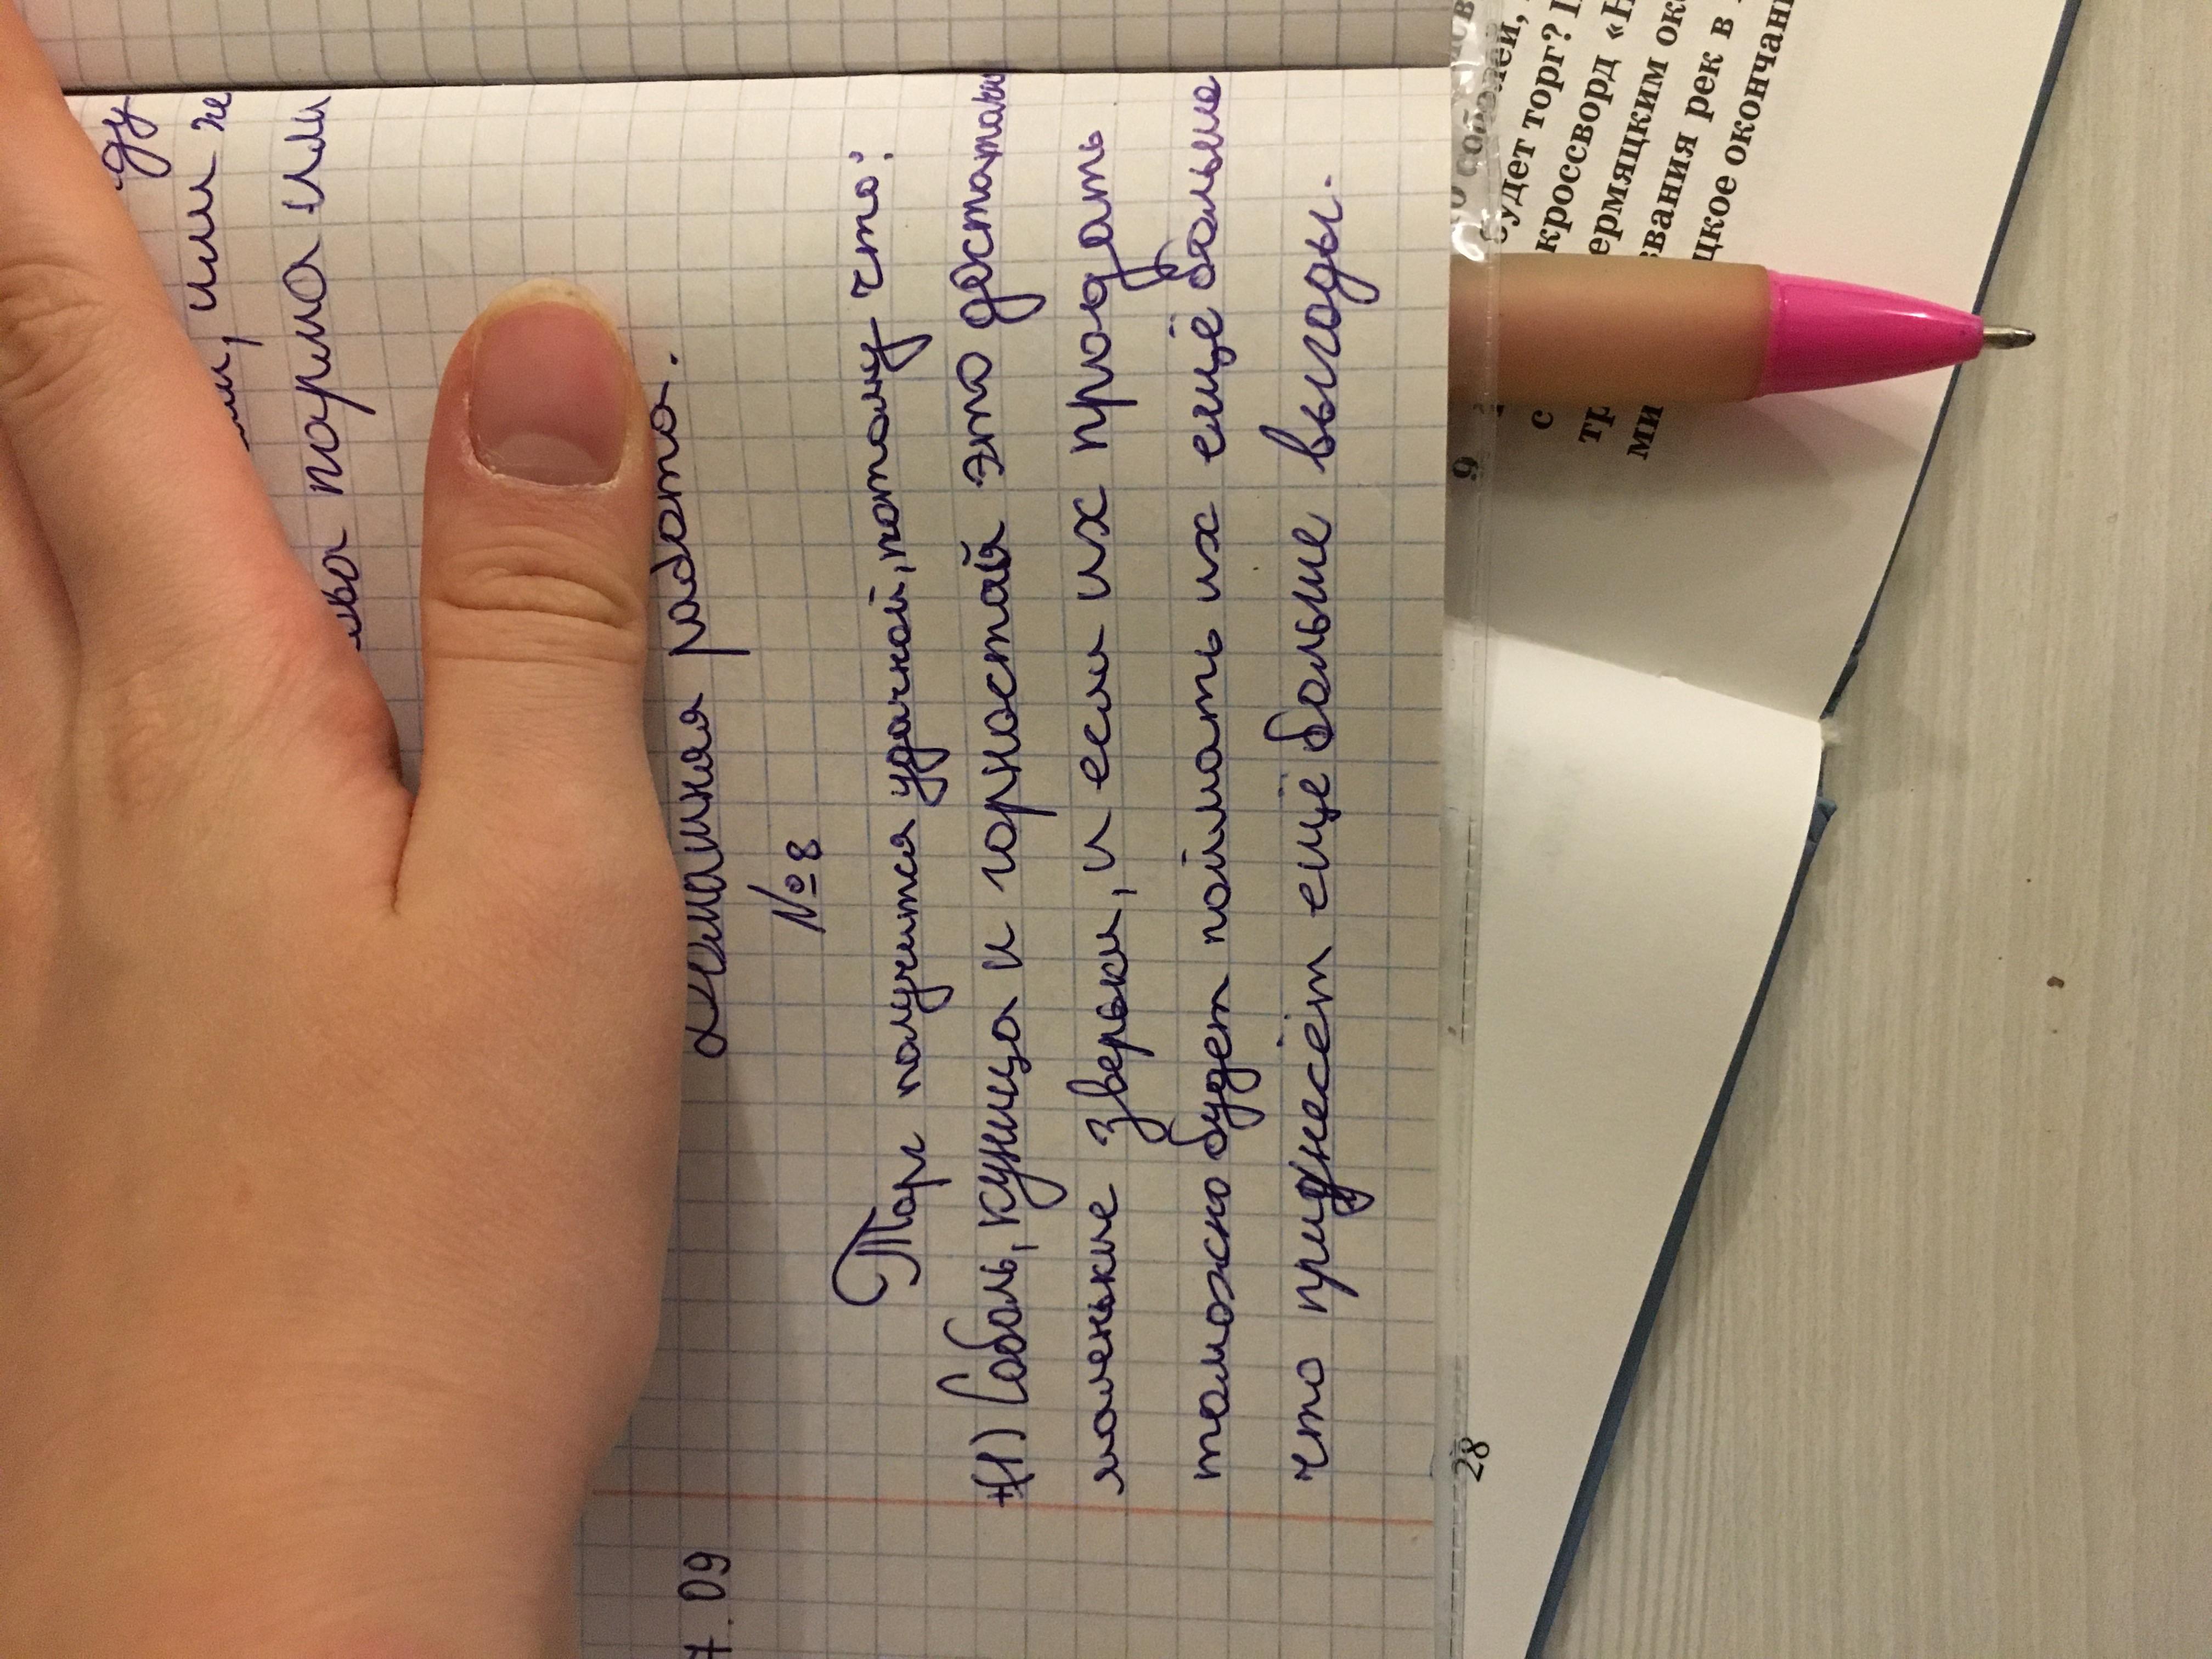 ду
или не
парма или
7.09
Домашняя работа.
№8
Торг получится удачной, потому что:
1) Соболь, куница и горностай это достаточно
маленькие зверьки, и если их продать
то можно будет поймать их ещё больше
что принесёт ещё больше выгоды.
28
9
соболей,
будет торг?
кроссворд «Н
ермяцким ок
звания рек в
цкое окончан
с
тр
ми